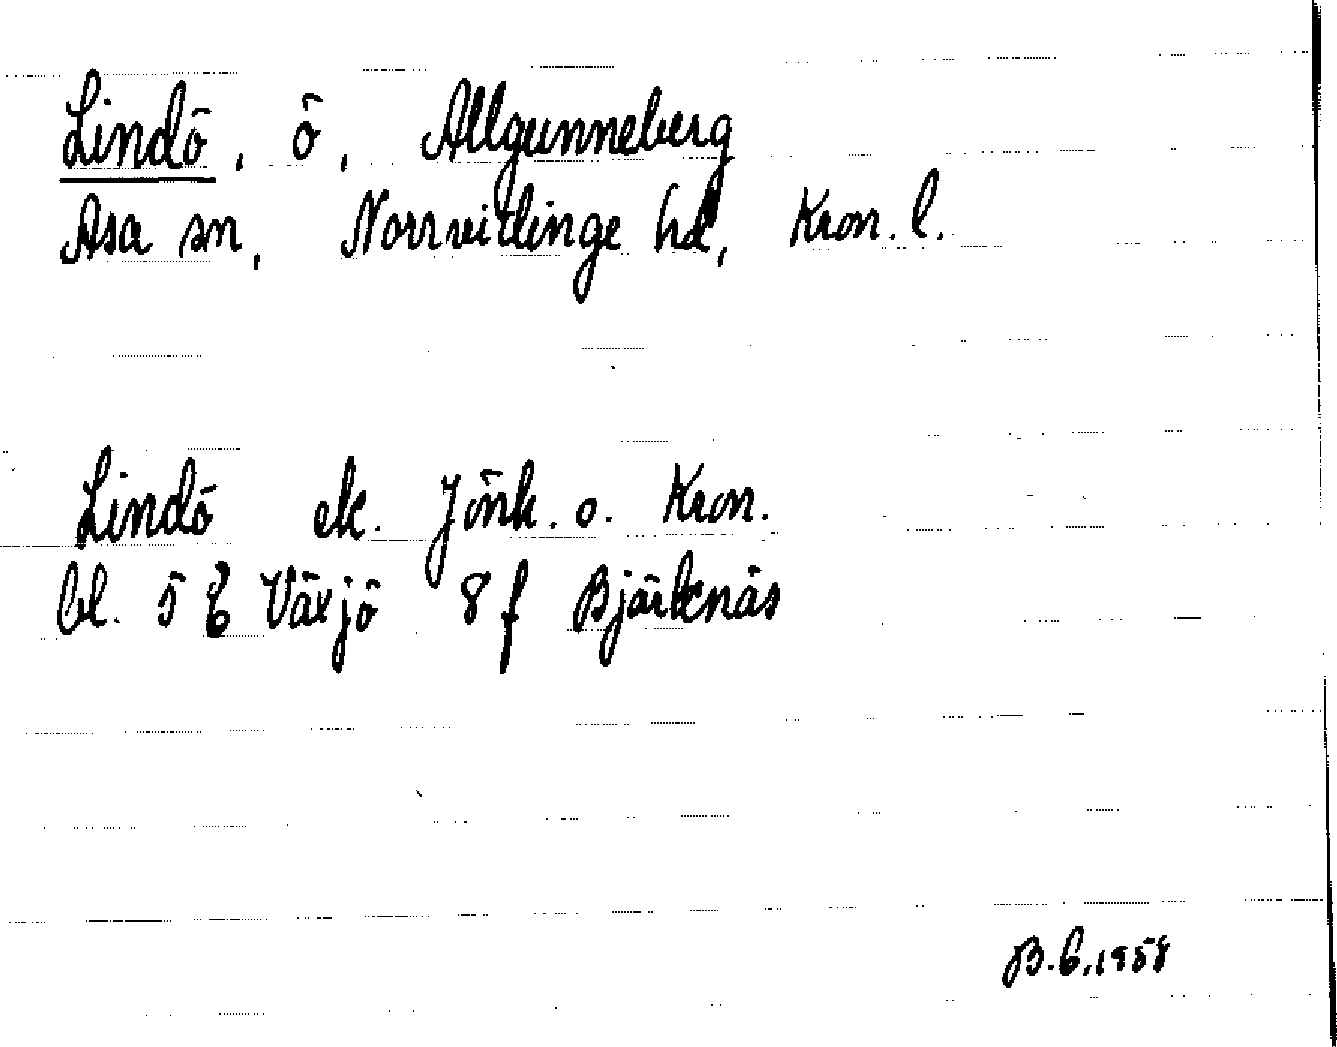 Lindö, ö, Allgunneberg
Asa sn, Norrvidinge hd, Kron. l.
Lindö ek. Jönk. o. Kron.
bl. 5 E Växjö 8 f Bjärknäs
B.E.1958